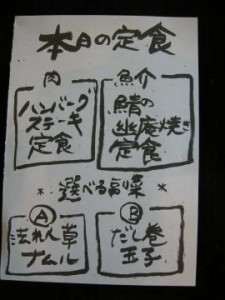 本日の定食
肉
ハンバーグ
ステーキ
定食
魚介
鯖の
幽庵焼き
定食
* 選べる副菜 *
A
法れん草
ナムル
B
だし巻
玉子